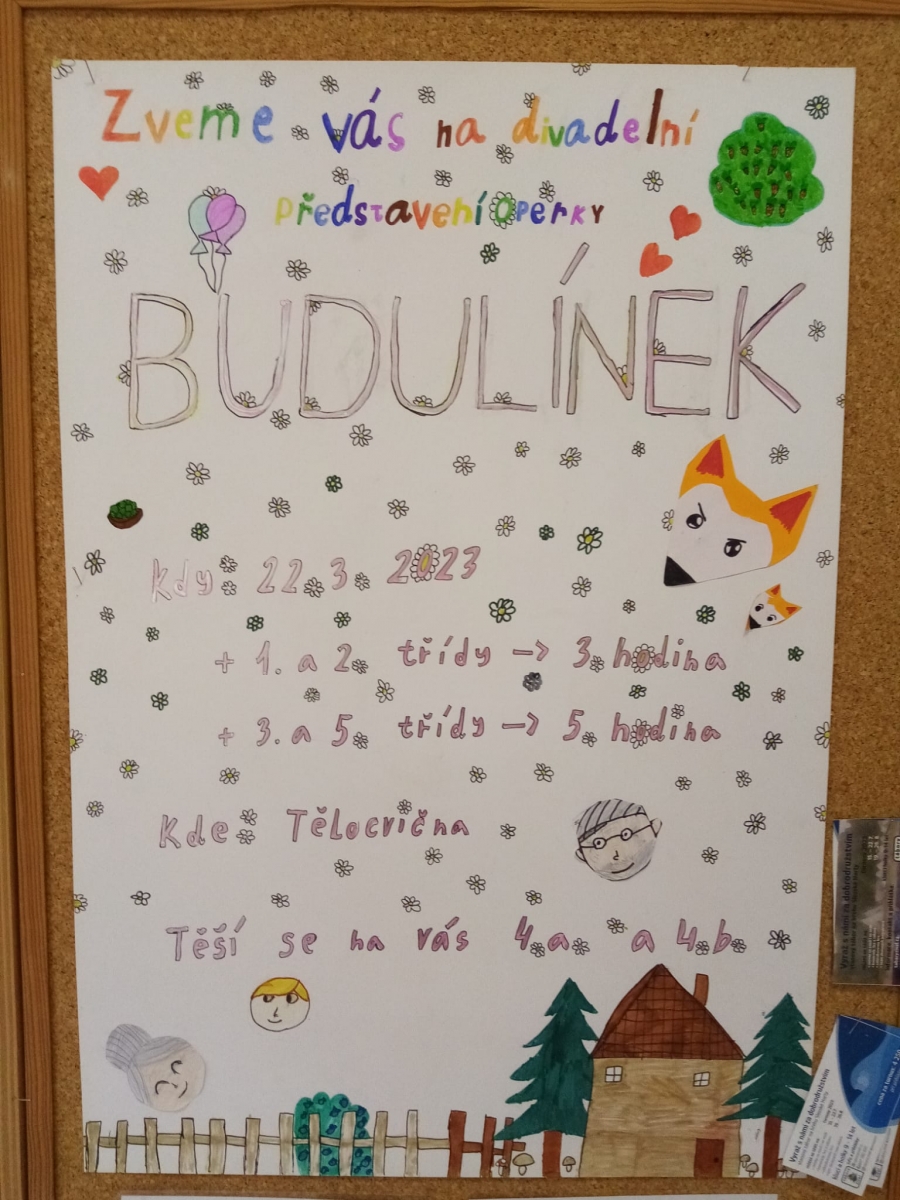 Zveme vás na divadelní
představení operky
BUDULÍNEK
Kdy: 22. 3. 2023
+ 1. a 2. třídy -> 3. hodina
+ 3. a 5. třídy -> 5. hodina
Kde: Tělocvična
Těší se na vás 4.a. a 4.b.
Vyraž s námi za dobrodružstvím
Vyraž s námi za dobrodružstvím